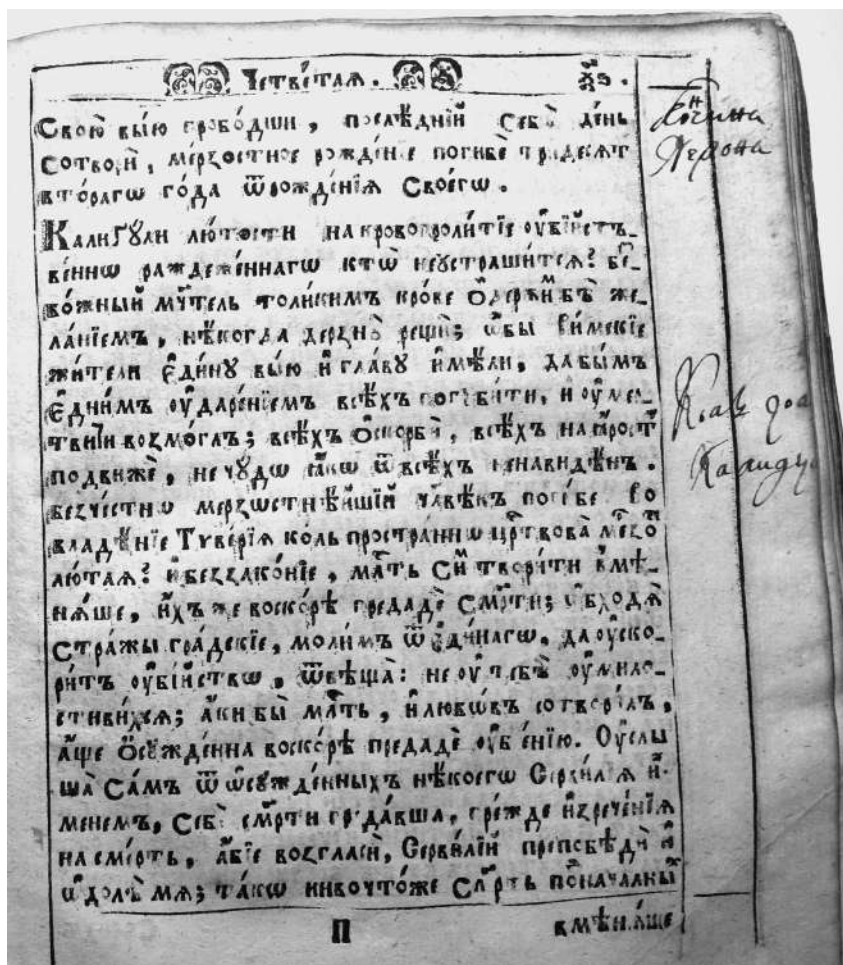 Четве́ртая.
Свою̀ вы́ю пробо́дши, послѣ́днїй Себѣ̀ де́нь
Сотворѝ, ме́рзостное рожде́нїе поги́бе три́десѧт
вто́рагѡ го́да ѿрожде́нїѧ Своегѡ̀.
Калиґꙋ́ли лю́тости на кровопроли́тїе ᲂу҆бі́йстъ_
веннѡ ражеже́ннагѡ кто̀ неустраши́тсѧ? бе_
бо́жный мꙋ҃тель толи́кимъ кро́ве ѡ҆держи́мъ бѣ̀ же_
ла́нїемъ, нѣ́когда дерзнꙋ̀ рещѝ; ѡ҆бы̀ Ри́мскїе
жи́тели є҆ди́нꙋ вы́ю и҆ гла́вꙋ и҆мѣ́ли, да бы́мъ
є҆дни́мъ ᲂу҆даре́нїемъ всѣ́хъ погꙋби́ти, и ᲂу҆ме_
твиⷮи возмо́глъ; всѣ́хъ ѡ҆скорбѝ, всѣ́хъ на ꙗ҆́рость
подви́же, не чꙋ́дѡ ꙗ҆́кѡ ѿ всѣ́хъ ненави́дѣнъ.
безче́стнѡ мерзѡстнѣ́йшїй чл҃вѣ́къ поги́бе во
владѣ́нїе Тѵве́рїѧ ко́ль простра́ннѡ црⷭ҇твова̀
лю́таѧ? и҆ беззако́нїе, мл҃ть Си́мъ твори́ти вмѣ_
нѧ́ше, и҆́хъ же вско́рѣ предадѐ См҃рти; ѡ҆бходѧ̀
Стра́жы гра́дскїе, моли́мъ ѿ є҆ди́нагѡ, да ᲂу҆ско_
ри́тъ ᲂу҆бі́йствѡ, ѿвѣща̀: не ᲂу҆ тебѣ̀ ᲂу҆мило_
стиви́хсѧ; а҆́ки бы̀ мл҃ть, и҆ любо́въ сотвори́лъ,
а҆́ще ѡ҆сꙋжде́нна вско́рѣ предадѐ ᲂу҆бїе́нїю. Оу҆слы
ша̀ Са́мъ ѿ ѡ҆сꙋжде́нныхъ нѣ́коегѡ Серви́лїѧ и҆_
менемъ, Себѐ см҃рти преда́вша, пре́жде и҆зрече́нїѧ
на сме́рть, а҆́бїе возгласѝ, Серви́лїй препобѣдѝ и҆
ѡ҆долѣ̀ мѧ̀; та́кѡ ни во что́же См҃рть
П вмѣнѧ́ше
Кончина
Нерона
Калигу